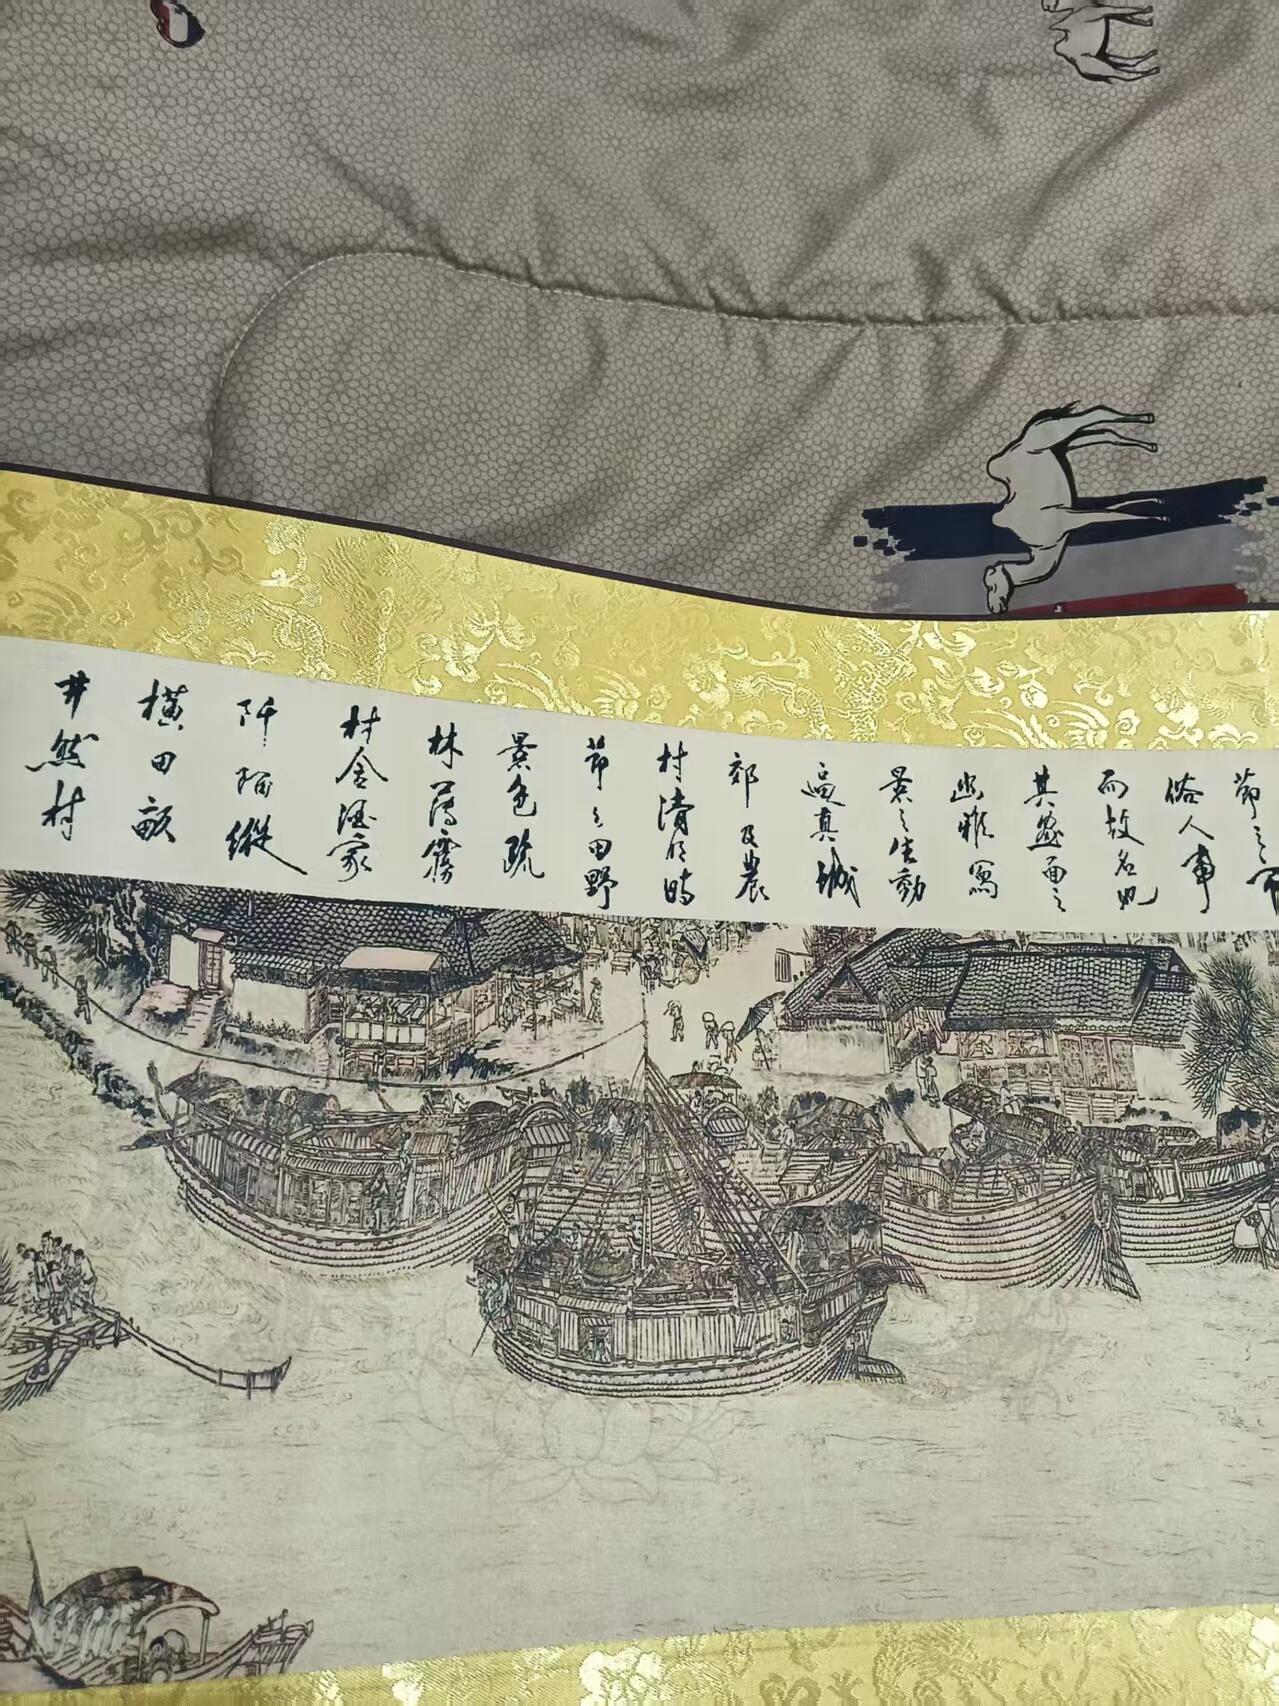 節之
俗人事
而故名也
其畫面之
幽雅寫
景之生動
逼真城
郊及農
村清明時
節之田野
景色疏
林薄霧
村舍酒家
阡陌縱
橫田畝
井然村